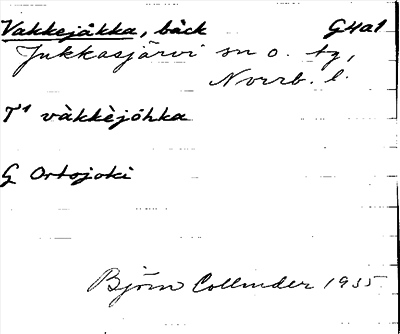 Vakkejåkka, bäck G4a1
Jukkasjärvi sn o. tg,
Norrb. l.
T¹ vàkkèjåhka
G Ortojoki
Björn Collinder 1935